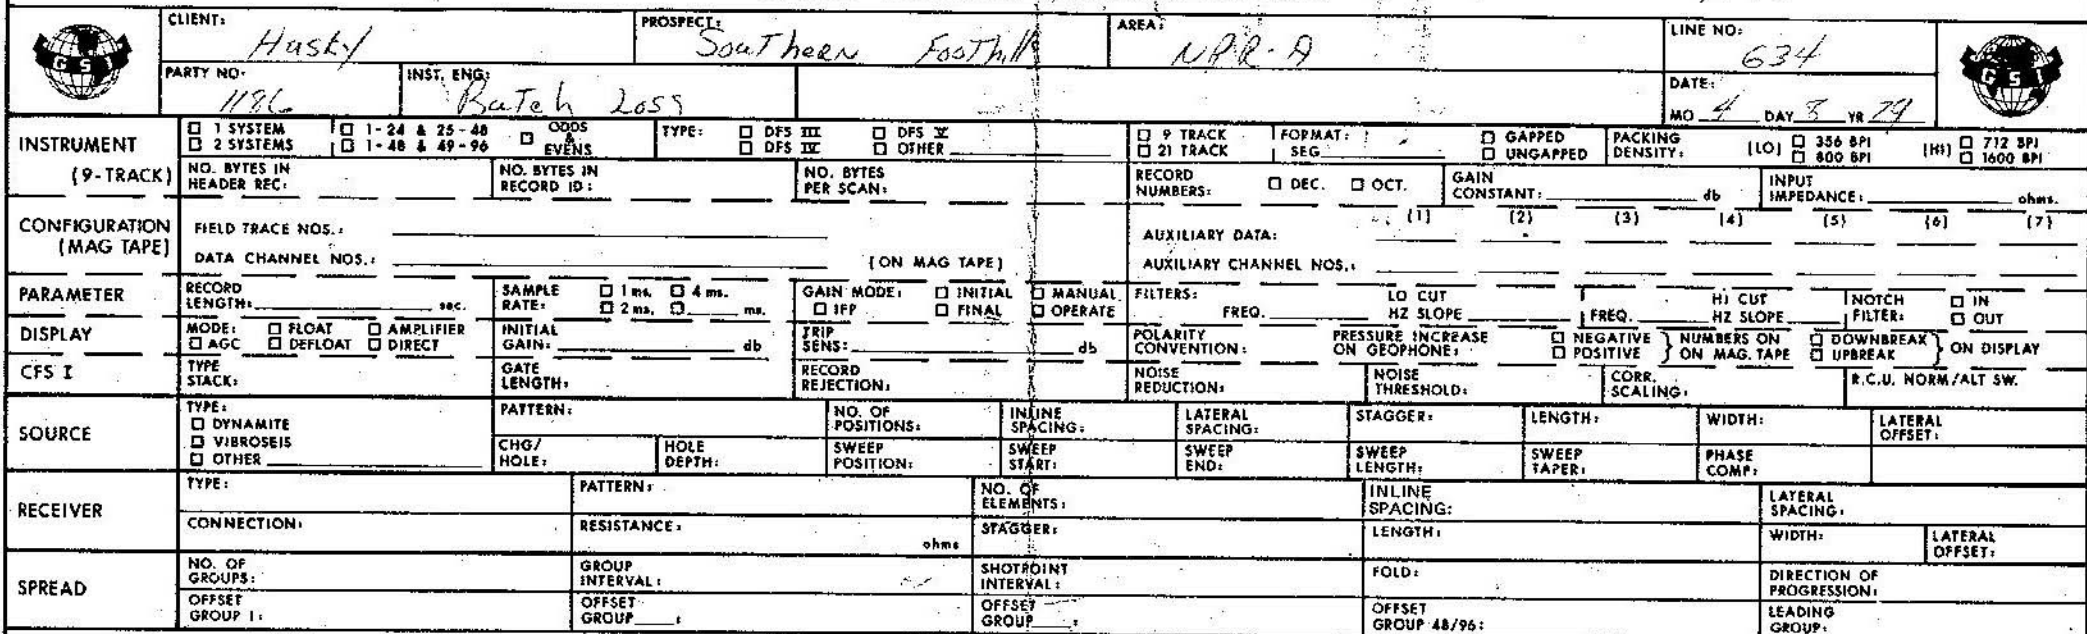 CLIENT: Husky PROSPECT: Southern Foothill AREA: NPR-A LINE NO: 634
GSI
PARTY NO. 1186 INST. ENG: Butch Loss DATE: MO 4 DAY 8 YR 79
GSI
INSTRUMENT (9-TRACK)
☐ 1 SYSTEM ☐ 1-24 & 25-48 ☐ ODDS & EVENS TYPE: ☐ DFS III ☐ DFS V ☐ 9 TRACK FORMAT: ☐ GAPPED PACKING DENSITY: (LO) ☐ 356 BPI (HI) ☐ 712 BPI
☐ 2 SYSTEMS ☐ 1-48 & 49-96 ☐ DFS IV ☐ OTHER ☐ 21 TRACK SEG ☐ UNGAPPED ☐ 800 BPI ☐ 1600 BPI
NO. BYTES IN HEADER REC: NO. BYTES IN RECORD ID: NO. BYTES PER SCAN: RECORD NUMBERS: ☐ DEC. ☐ OCT. GAIN CONSTANT: db INPUT IMPEDANCE: ohms.
CONFIGURATION (MAG TAPE)
(1) (2) (3) (4) (5) (6) (7)
FIELD TRACE NOS.: AUXILIARY DATA:
DATA CHANNEL NOS.: (ON MAG TAPE) AUXILIARY CHANNEL NOS.:
PARAMETER
RECORD LENGTH: sec. SAMPLE RATE: ☐ 1 ms. ☐ 4 ms. ☐ 2 ms. ☐ ms. GAIN MODE: ☐ INITIAL ☐ MANUAL ☐ IFP ☐ FINAL ☐ OPERATE FILTERS: FREQ. LO CUT HZ SLOPE FREQ. HI CUT HZ SLOPE NOTCH FILTER: ☐ IN ☐ OUT
DISPLAY
MODE: ☐ FLOAT ☐ AMPLIFIER ☐ AGC ☐ DEFLOAT ☐ DIRECT INITIAL GAIN: db TRIP SENS: db POLARITY CONVENTION: PRESSURE INCREASE ON GEOPHONE: ☐ NEGATIVE ☐ POSITIVE } NUMBERS ON ON MAG. TAPE ☐ DOWNBREAK ☐ UPBREAK } ON DISPLAY
CFS I
TYPE STACK: GATE LENGTH: RECORD REJECTION: NOISE REDUCTION: NOISE THRESHOLD: CORR. SCALING: R.C.U. NORM/ALT SW.
SOURCE
TYPE: ☐ DYNAMITE ☐ VIBROSEIS ☐ OTHER
PATTERN: NO. OF POSITIONS: INLINE SPACING: LATERAL SPACING: STAGGER: LENGTH: WIDTH: LATERAL OFFSET:
CHG/ HOLE: HOLE DEPTH: SWEEP POSITION: SWEEP START: SWEEP END: SWEEP LENGTH: SWEEP TAPER: PHASE COMP:
RECEIVER
TYPE: PATTERN: NO. OF ELEMENTS: INLINE SPACING: LATERAL SPACING:
CONNECTION: RESISTANCE: ohms STAGGER: LENGTH: WIDTH: LATERAL OFFSET:
SPREAD
NO. OF GROUPS: GROUP INTERVAL: SHOTPOINT INTERVAL: FOLD: DIRECTION OF PROGRESSION:
OFFSET GROUP 1: OFFSET GROUP : OFFSET GROUP : OFFSET GROUP 48/96: LEADING GROUP: